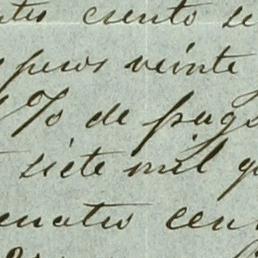 ciento se
pesos veinte
% de pago
siete mil q
cuatro cen